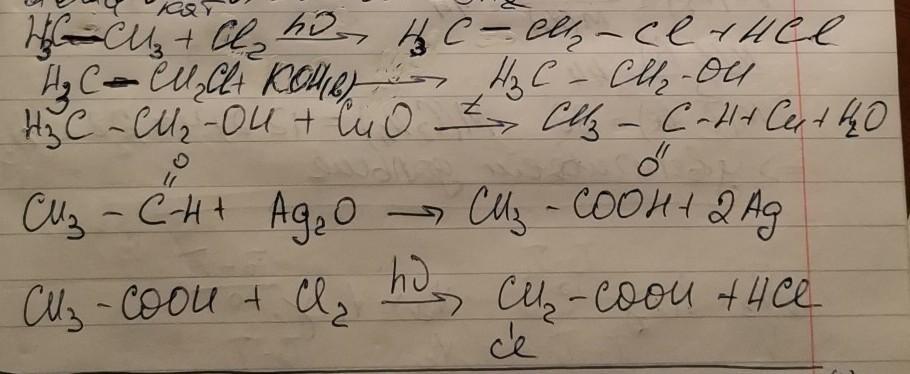 кат
H₃C–CH₃ + Cl₂ hν→ H₃C – CH₂ – Cl + HCl
H₃C – CH₂Cl + KOH(в) → H₃C – CH₂-OH
H₃C – CH₂-OH + CuO t→ CH₃ – C-H + Cu + H₂O
O
O
CH₃ – C-H + Ag₂O → CH₃ – COOH + 2Ag
CH₃-COOH + Cl₂ hν→ CH₂-COOH + HCl
Cl